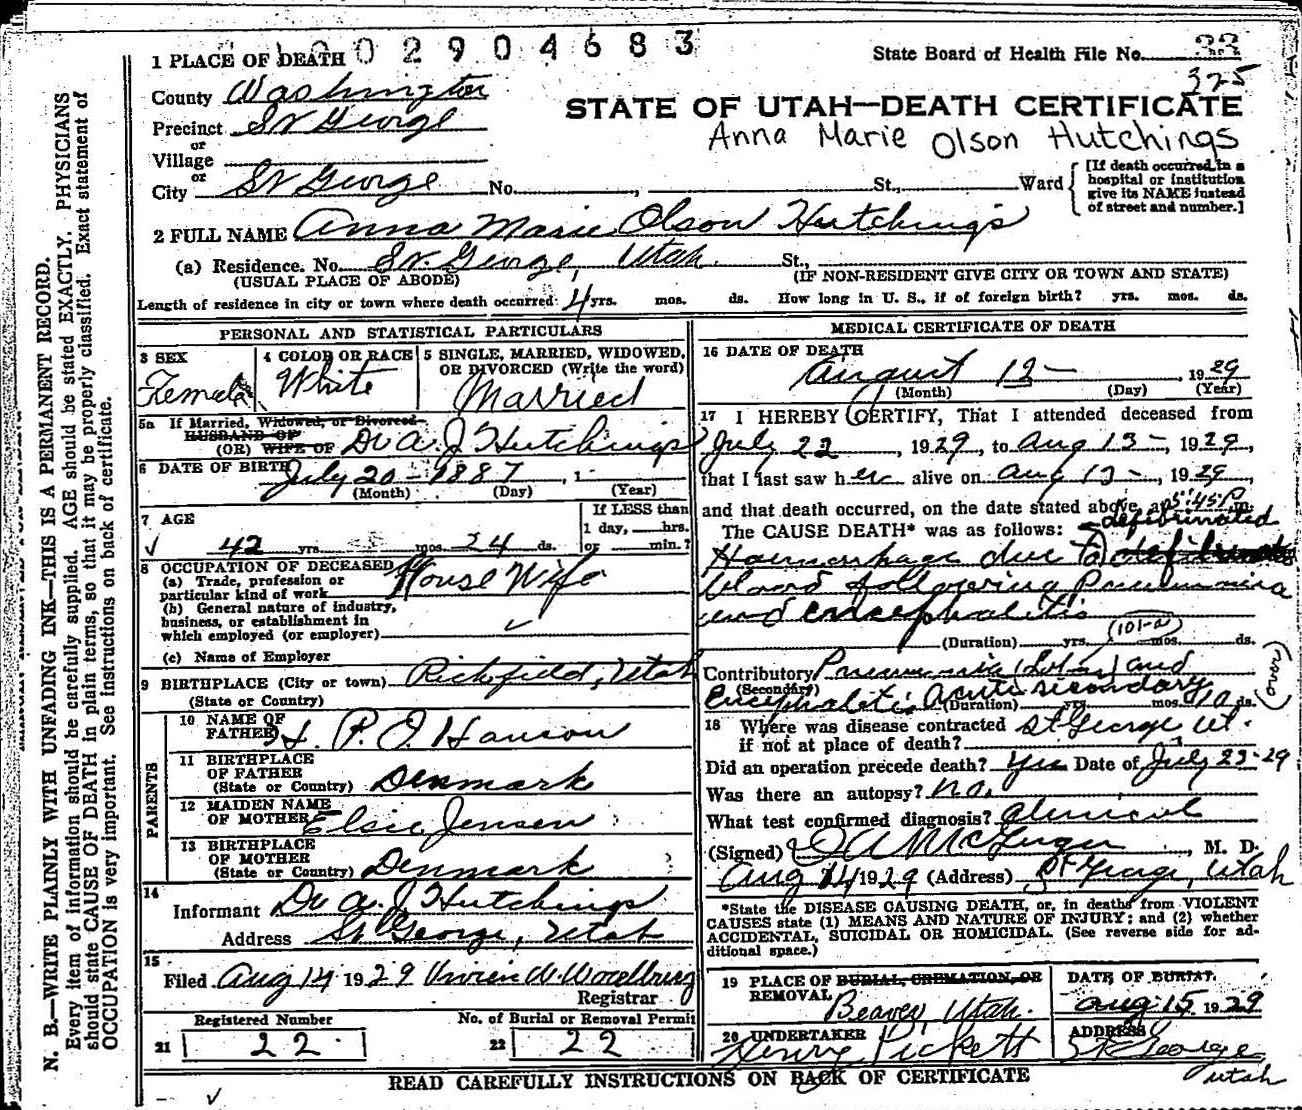 1 PLACE OF DEATH 002904683
State Board of Health File No. 33
325
County Washington
STATE OF UTAH—DEATH CERTIFICATE
Precinct St George
Anna Marie Olson Hutchings
or
Village
or
City St George No. , St., Ward
[If death occurred in a
hospital or institution
give its NAME instead
of street and number.]
2 FULL NAME Anna Marie Olson Hutchings
(a) Residence. No. St. George, Utah. St.,
(USUAL PLACE OF ABODE) (IF NON-RESIDENT GIVE CITY OR TOWN AND STATE)
Length of residence in city or town where death occurred 4 yrs. mos. ds. How long in U. S., if of foreign birth? yrs. mos. ds.
PERSONAL AND STATISTICAL PARTICULARS
3 SEX
Female
4 COLOR OR RACE
White
5 SINGLE, MARRIED, WIDOWED,
OR DIVORCED (Write the word)
Married
5a If Married, Widowed, or Divorced
HUSBAND OF
(OR) WIFE OF Dr A. J Hutchings
6 DATE OF BIRTH July 20 - 1887, 1
(Month) (Day) (Year)
7 AGE
42 yrs. mos. 24 ds.
If LESS than
1 day, hrs.
or min.?
8 OCCUPATION OF DECEASED House Wife
(a) Trade, profession or
particular kind of work
(b) General nature of industry,
business, or establishment in
which employed (or employer)
(c) Name of Employer
9 BIRTHPLACE (City or town) Richfield, Utah
(State or Country)
PARENTS
10 NAME OF
FATHER H. P. O. Hanson
11 BIRTHPLACE
OF FATHER
(State or Country) Denmark
12 MAIDEN NAME
OF MOTHER Elsie Jensen
13 BIRTHPLACE
OF MOTHER
(State or Country) Denmark
14
Informant Dr A. J Hutchings
Address St George, Utah
15
Filed Aug 14 1929
Registrar
Registered Number No. of Burial or Removal Permit
21 22 22 22
MEDICAL CERTIFICATE OF DEATH
16 DATE OF DEATH
August 13 - , 1929
(Month) (Day) (Year)
17 I HEREBY CERTIFY, That I attended deceased from
July 22, 1929, to Aug 13 -, 1929,
that I last saw her alive on Aug 13 -, 1929,
and that death occurred, on the date stated above, at 5:45 P m.
The CAUSE DEATH* was as follows: defibrinated
Haemorrhage due to
blood following Pneumonia
and encephalitis
(101-a)
(Duration) yrs. mos. ds.
Contributory Pneumonia (Lobar) and
(Secondary)
Encephalitis Acute secondary
(Duration) yrs. mos. 10 ds.
18 Where was disease contracted St George Ut.
if not at place of death?
Did an operation precede death? Yes Date of July 23-29
Was there an autopsy? No.
What test confirmed diagnosis? Clinical
(Signed) McGregor, M. D.
Aug 14 1929 (Address) St George, Utah
*State the DISEASE CAUSING DEATH, or, in deaths from VIOLENT
CAUSES state (1) MEANS AND NATURE OF INJURY; and (2) whether
ACCIDENTAL, SUICIDAL OR HOMICIDAL. (See reverse side for ad-
ditional space.)
19 PLACE OF BURIAL, CREMATION, OR
REMOVAL
Beaver, Utah.
DATE OF BURIAL.
Aug 15 1929
20 UNDERTAKER
Henry Pickett
ADDRESS
St George
Utah
READ CAREFULLY INSTRUCTIONS ON BACK OF CERTIFICATE
N. B.—WRITE PLAINLY WITH UNFADING INK—THIS IS A PERMANENT RECORD.
Every item of information should be carefully supplied. AGE should be stated EXACTLY. PHYSICIANS
should state CAUSE OF DEATH in plain terms, so that it may be properly classified. Exact statement of
OCCUPATION is very important. See instructions on back of certificate.